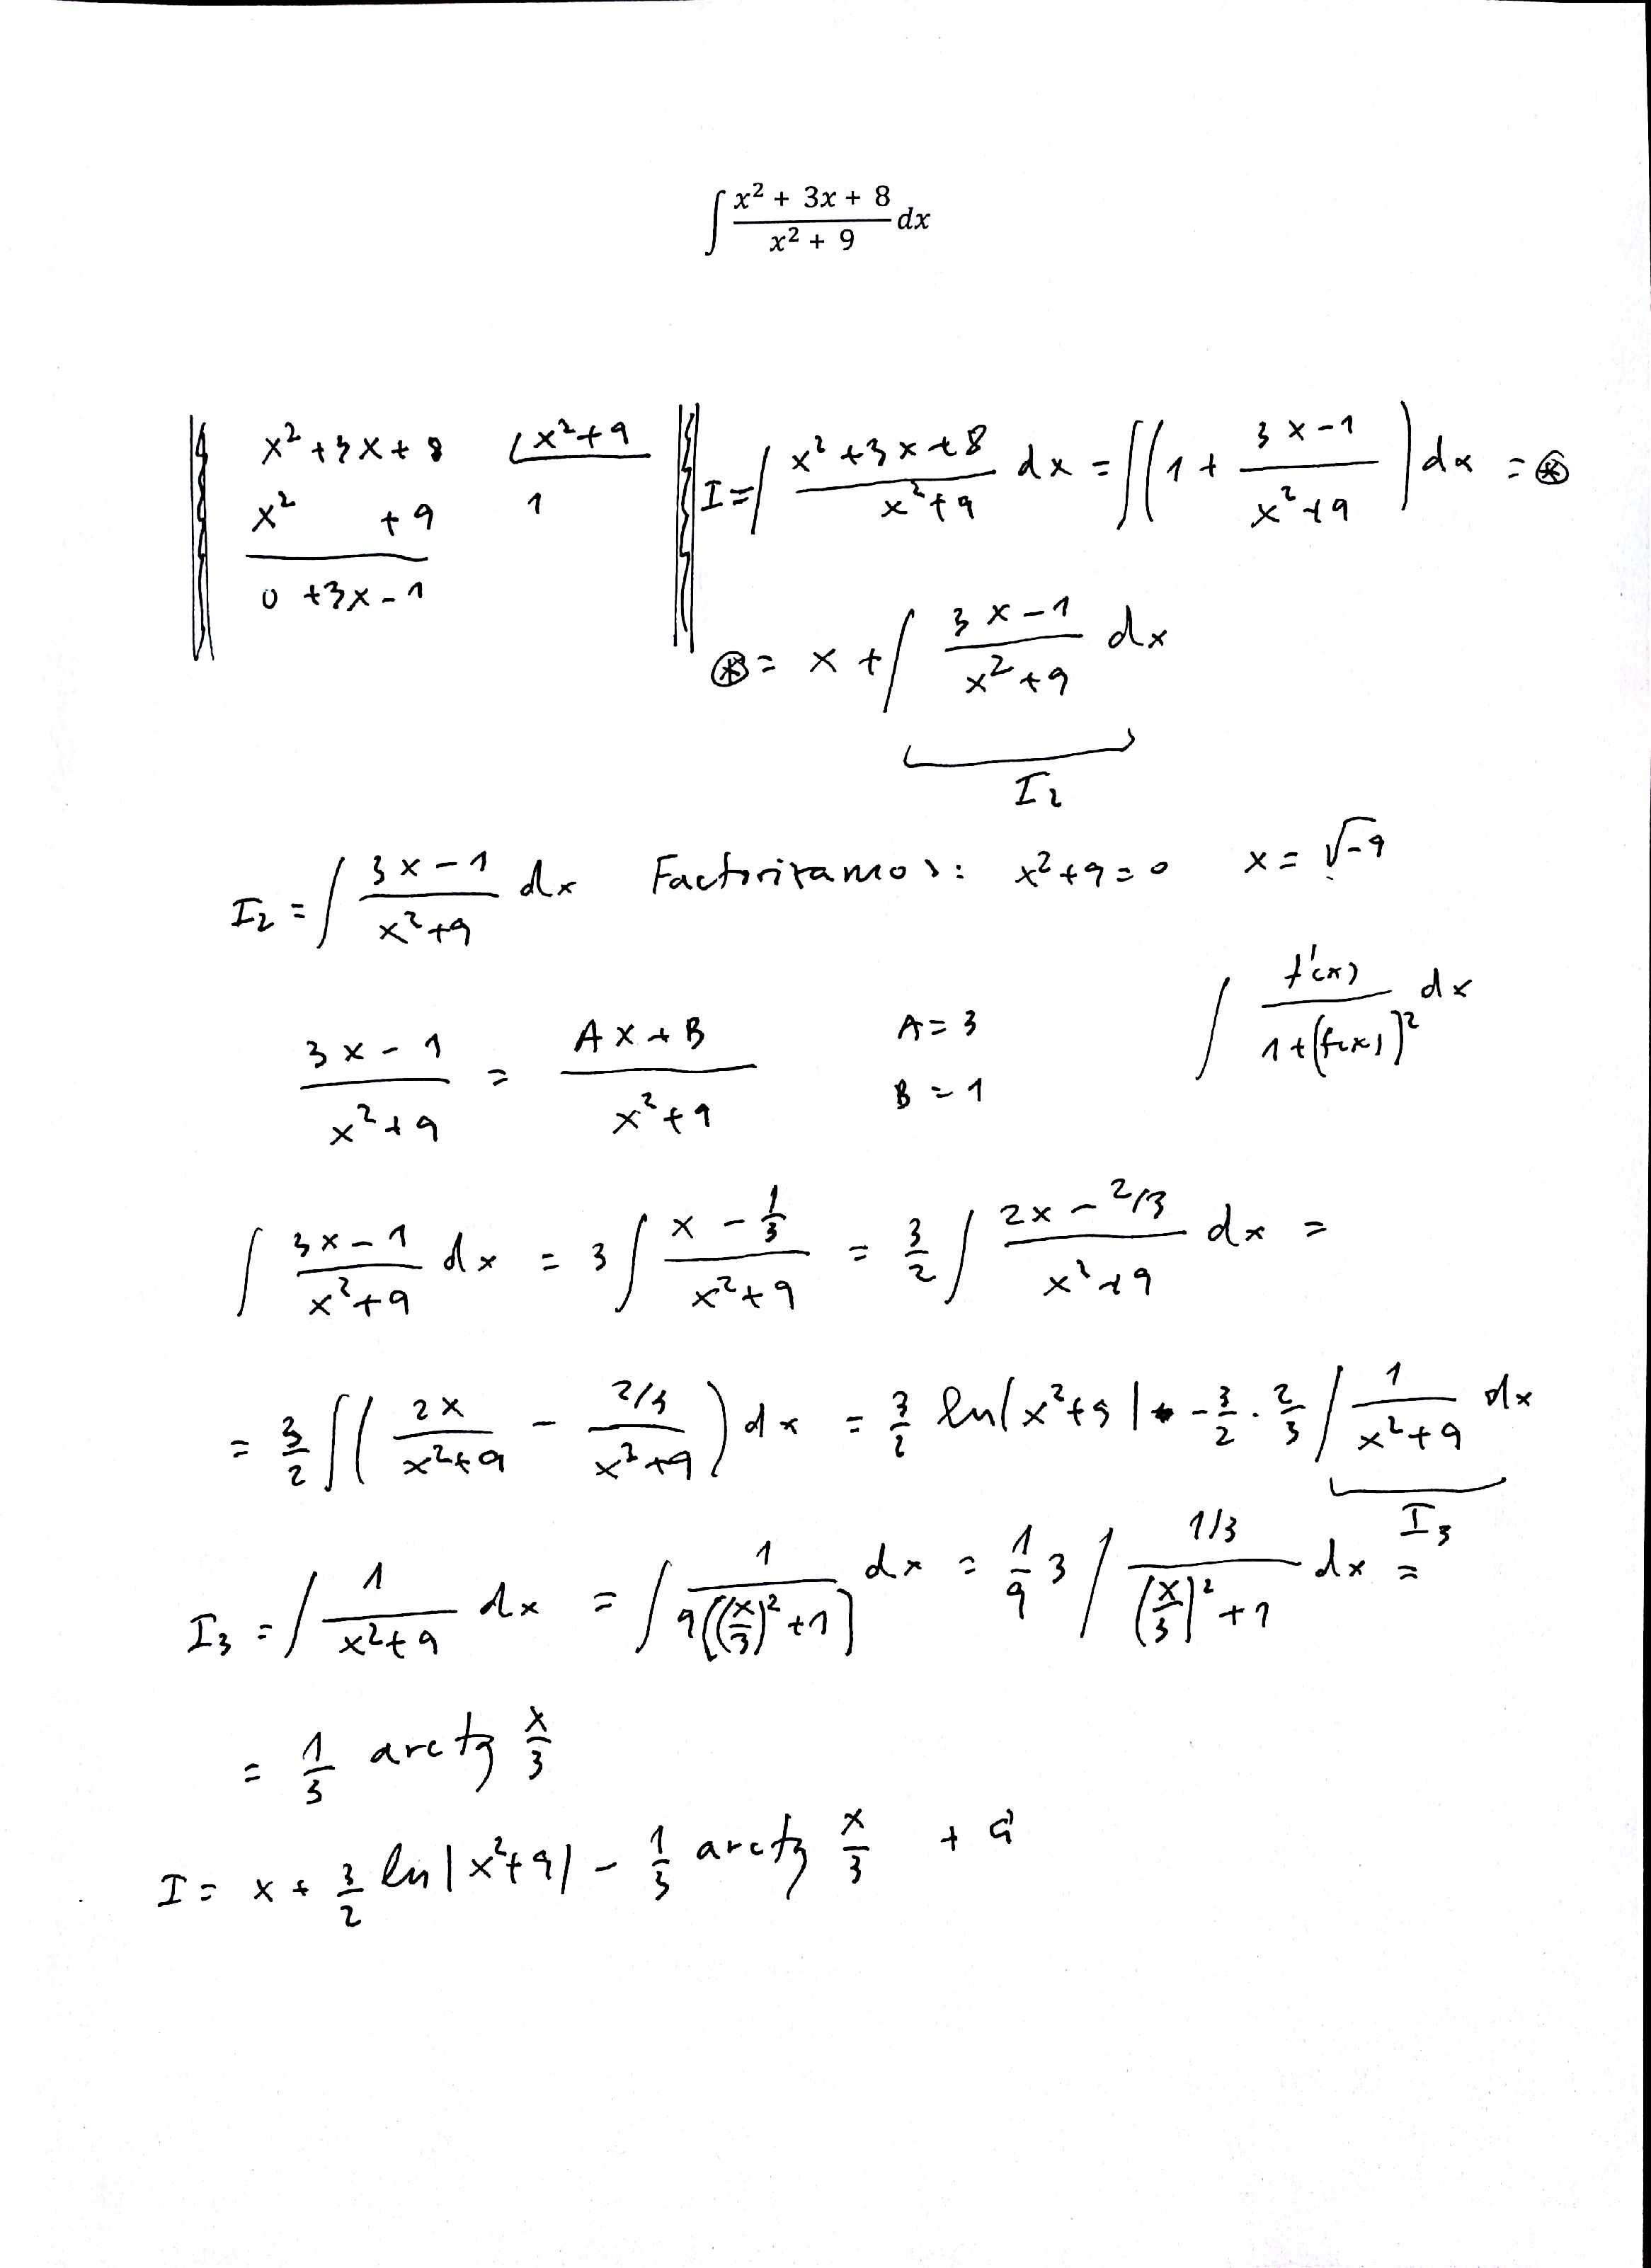 ∫ (x² + 3x + 8)/(x² + 9) dx
x² + 3x + 8 | x² + 9
x² + 9   1
0 + 3x - 1
I = ∫ (x² + 3x + 8)/(x² + 9) dx = ∫(1 + (3x - 1)/(x² + 9)) dx = ⊛
⊛ = x + ∫ (3x - 1)/(x² + 9) dx
I₂
I₂ = ∫ (3x - 1)/(x² + 9) dx Factorizamos: x² + 9 = 0 x = √-9
(3x - 1)/(x² + 9) = (Ax + B)/(x² + 9) A = 3 B = 1 ∫ f'(x)/(1 + (f(x))²) dx
∫ (3x - 1)/(x² + 9) dx = 3 ∫ (x - 1/3)/(x² + 9) = 3/2 ∫ (2x - 2/3)/(x² + 9) dx =
= 3/2 ∫(2x/(x² + 9) - (2/3)/(x² + 9)) dx = 3/2 ln|x² + 9| - 3/2 · 2/3 ∫ 1/(x² + 9) dx
I₃
I₃ = ∫ 1/(x² + 9) dx = ∫ 1/(9((x/3)² + 1)) dx = 1/9 3 ∫ (1/3)/((x/3)² + 1) dx =
= 1/3 arctg x/3
I = x + 3/2 ln|x² + 9| - 1/3 arctg x/3 +